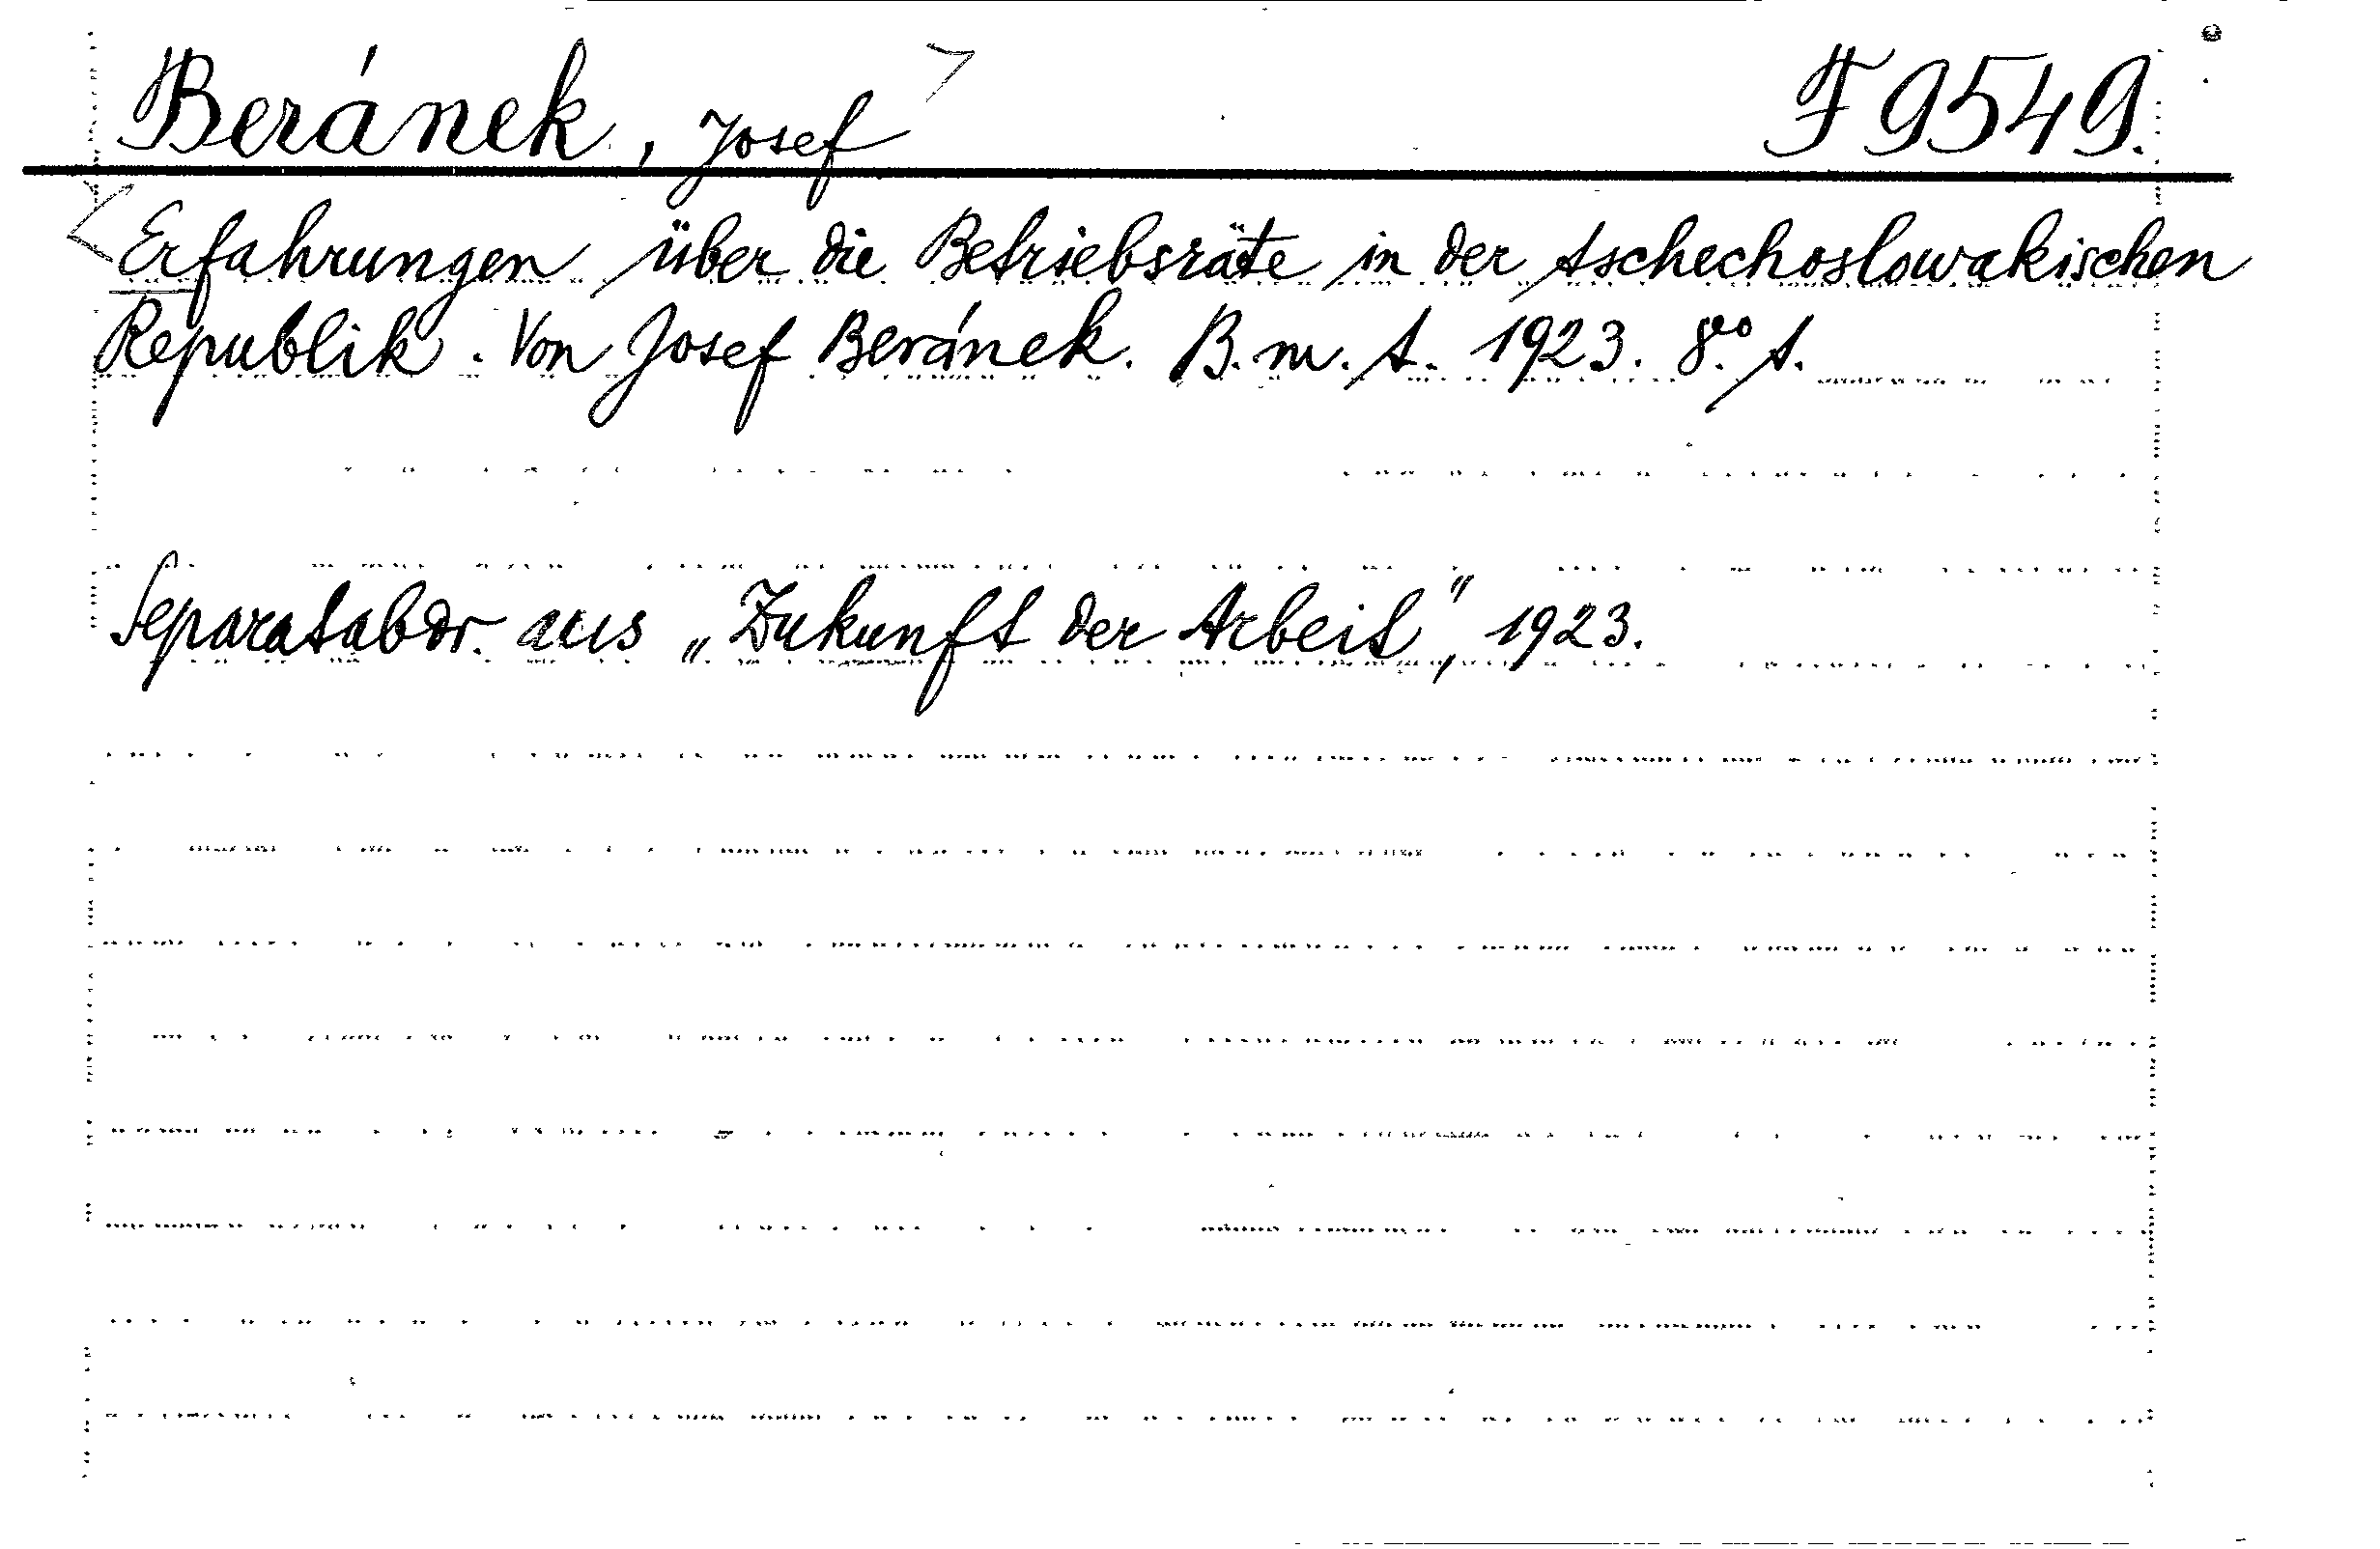 Beránek, Josef F 9549.
Erfahrungen über die Betriebsräte in der tschechoslowakischen
Republik. Von Josef Beránek. B. m. t. 1923. 8.º
Separatabdr. aus „Zukunft der Arbeit", 1923.